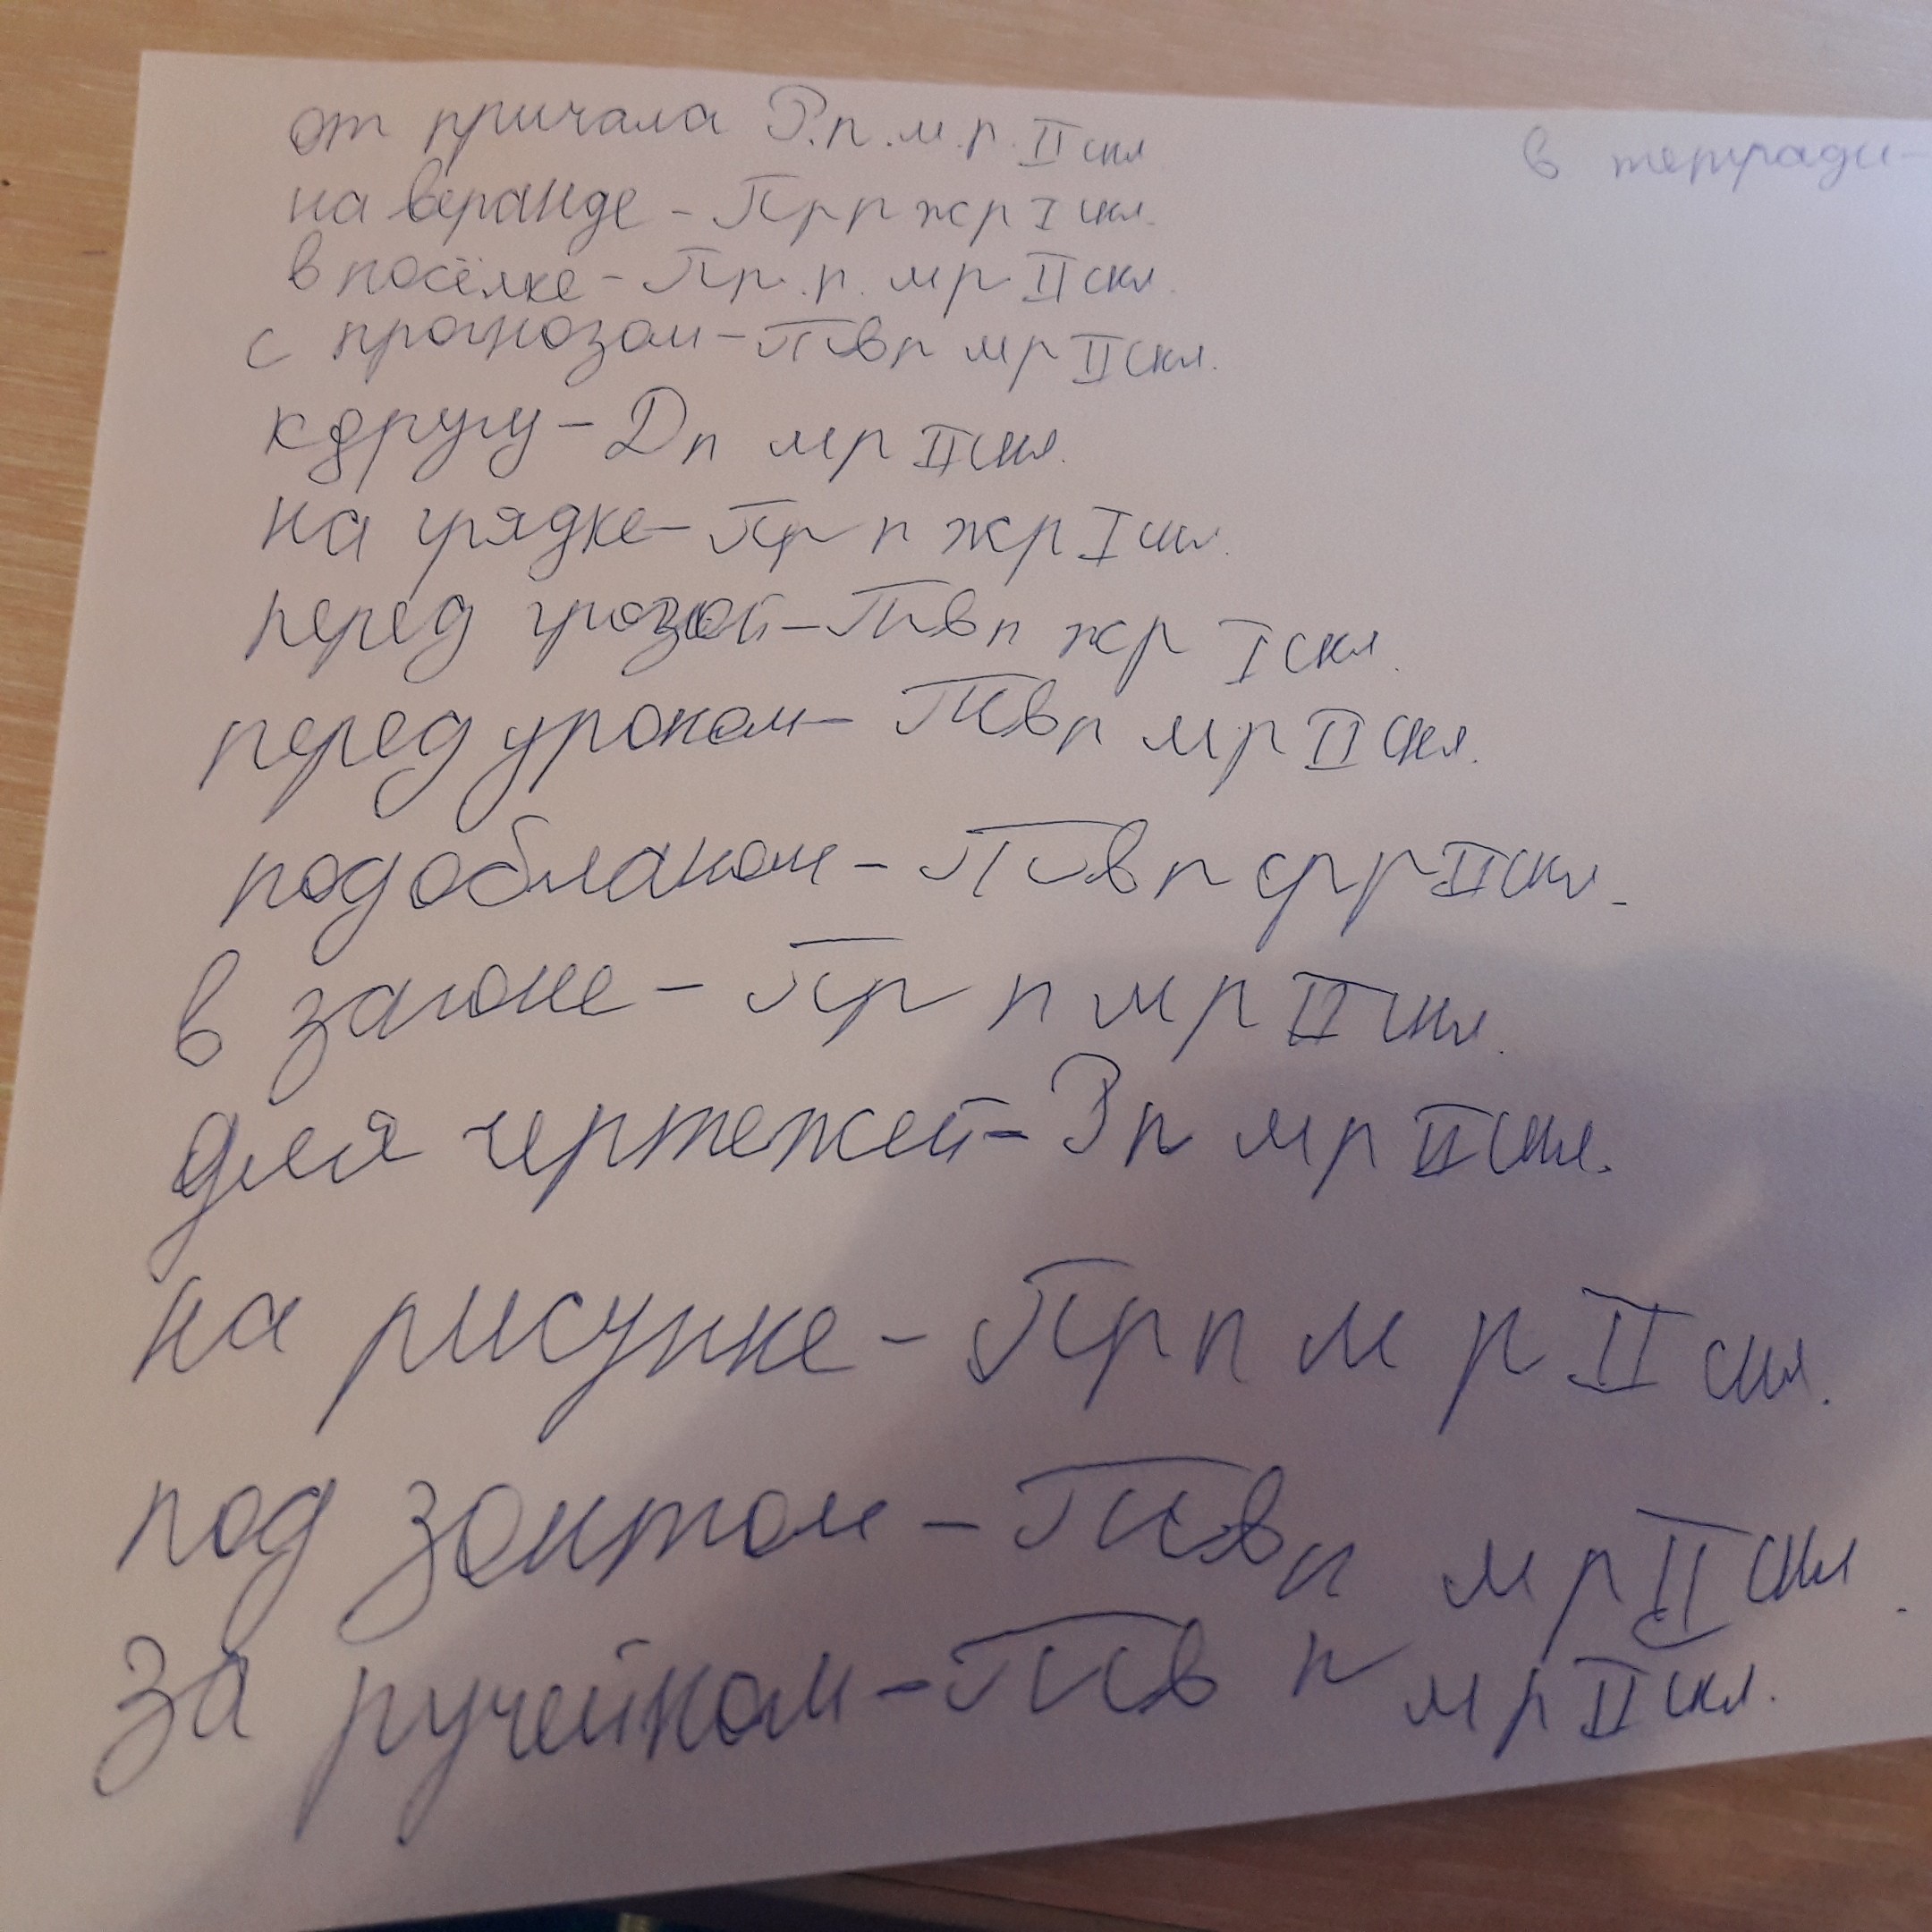 от причала Р.п. м.р. II скл
в тетради-
на веранде - Пр п жр I скл.
в посёлке - Пр. п. мр II скл.
с прогнозом - Твп мр II скл.
к другу - Дп мр II скл.
на грядке - Пр п жр I скл.
перед грозой - Твп жр I скл.
перед уроком - Твп мр II скл.
под облаком - Твп ср р II скл.
в загоне - Пр п мр II скл.
для чертежей - Рп мр II скл.
на рисунке - Прп м р II скл.
под зонтом - Твп мр II скл.
за ручейком - Тв п мр II скл.